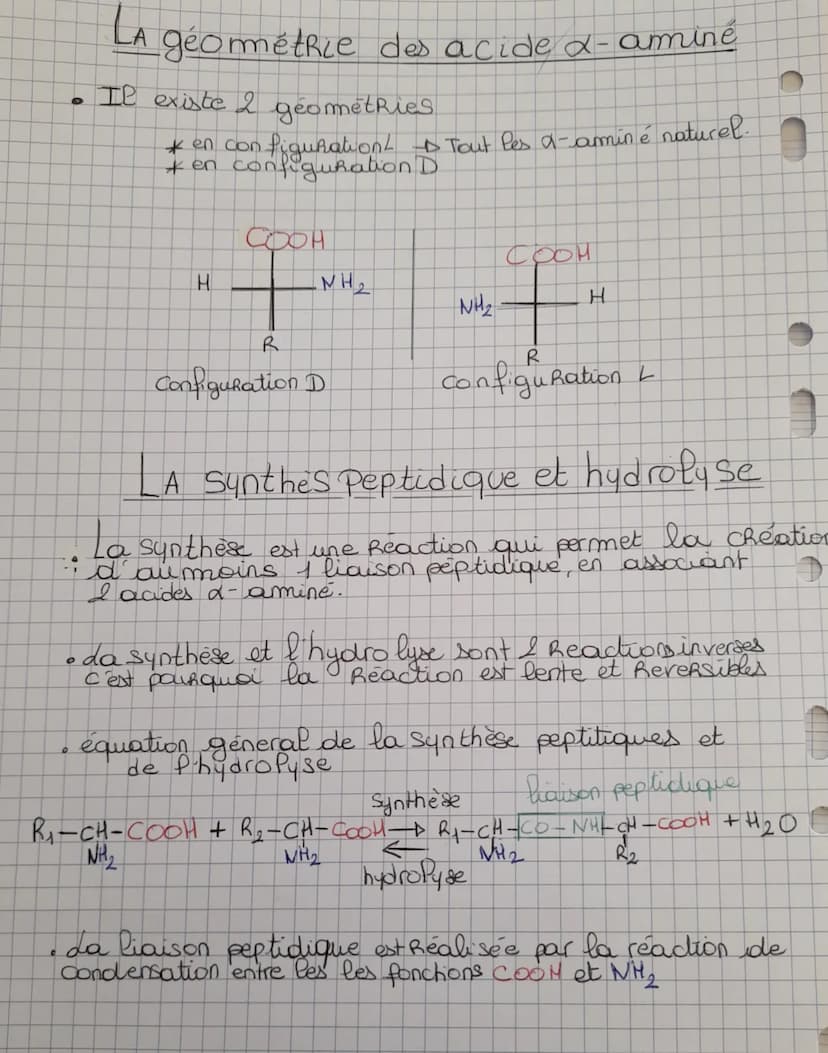 LA géométrie des acide α-aminé
• Il existe 2 géométries
* en configuration L → Tout les α-aminé naturel.
* en configuration D
COOH
H NH2
R
configuration D
COOH
NH2 H
R
configuration L
LA synthès peptidique et hydrolyse
• La synthèse est une réaction qui permet la création
d'au moins 1 liaison peptidique, en associant
2 acides α-aminé.
• La synthèse et l'hydrolyse sont 2 Reactions inverses
c'est pourquoi la Réaction est lente et Reversibles
• équation géneral de la synthèse peptitiques et
de l'hydrolyse
synthèse liaison peptidique
R1-CH-COOH + R2-CH-COOH → R1-CH-CO-NH-CH-COOH + H2O
NH2 NH2 ← NH2 R2
hydrolyse
• La liaison peptidique est Réalisée par la réaction de
condensation entre les les fonctions COOH et NH2